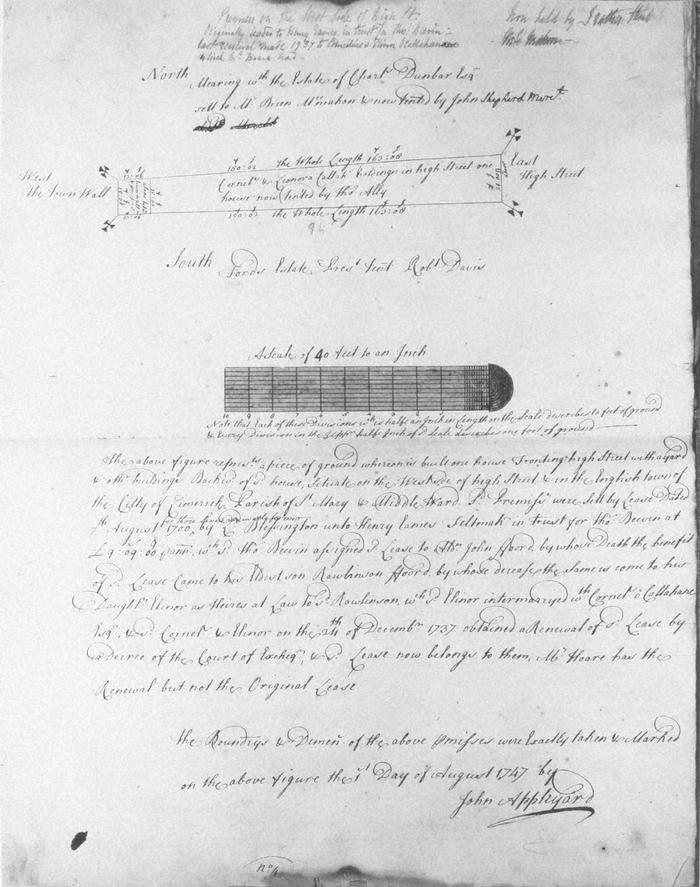 Premises on the West Side of high St.
Originally Leased to Henry James, in trust for Thos Bevin:
last renewal made 1737 to Cornelius & Elinor Callahane
which Mr Hoare had.
Now held by
North
Mearing wth the Estate of Charls Dunbar Esqr
sett to Mr Brien Mcmahon & now tented by John Shepherd Mercht
West
the Town Wall
150:02 the Whole Length 163:08
Cornels & Eleonora Callahs holdings in high Street one
house now tented by thos Ally
150:02 the Whole Length 163:08
East
High Street
South Fords Estate, Prest tent Robt Davis
A Scale of 40 feet to an Inch
10 9 8 7 6 5 4 3 2 1
Note that Each of these Divisions wch is half an Inch in Length on the Scale describes 20 feet of ground
& Every Division in the Upper half Inch of sd Scale describes one foot of ground
the above figure represts a piece of ground whereon is built one house Fronting high Street with a yard
& othr buildings Backwd of sd house, Scituate on the West side of high Street & in the English town of
the Citty of Limerick Parish of St Mary & Middle Ward sd Premisses were sett by Lease Dated
7th August 1700, by Ld Blessington unto Henry James Seltmakr in trust for thos Bevin at
£9:09:00 p ann. wch sd thos Bevin assigned sd Lease to John ffoord, by whose Death the benefit
of sd Lease Came to his Eldest son Rawlinson ffoord, by whose decease the Same is come to his
Daughtr Elinor as Heires at Law to sd Rawlinson, wch sd Elinor intermarryed wth Cornels o Callahane
Esqr, & sd Cornels & Elinor on the 24th of Decembr 1737 obtained a Renewal of sd Lease by
a Decree of the Court of Excheqr, & sd Lease now belongs to them, Mr Hoare has the
Renewal but not the Original Lease
the Boundrys & Demens. of the above pmisses were Exactly taken & Marked
on the above figure the 1st Day of August 1747 by
John Appleyard
no 4